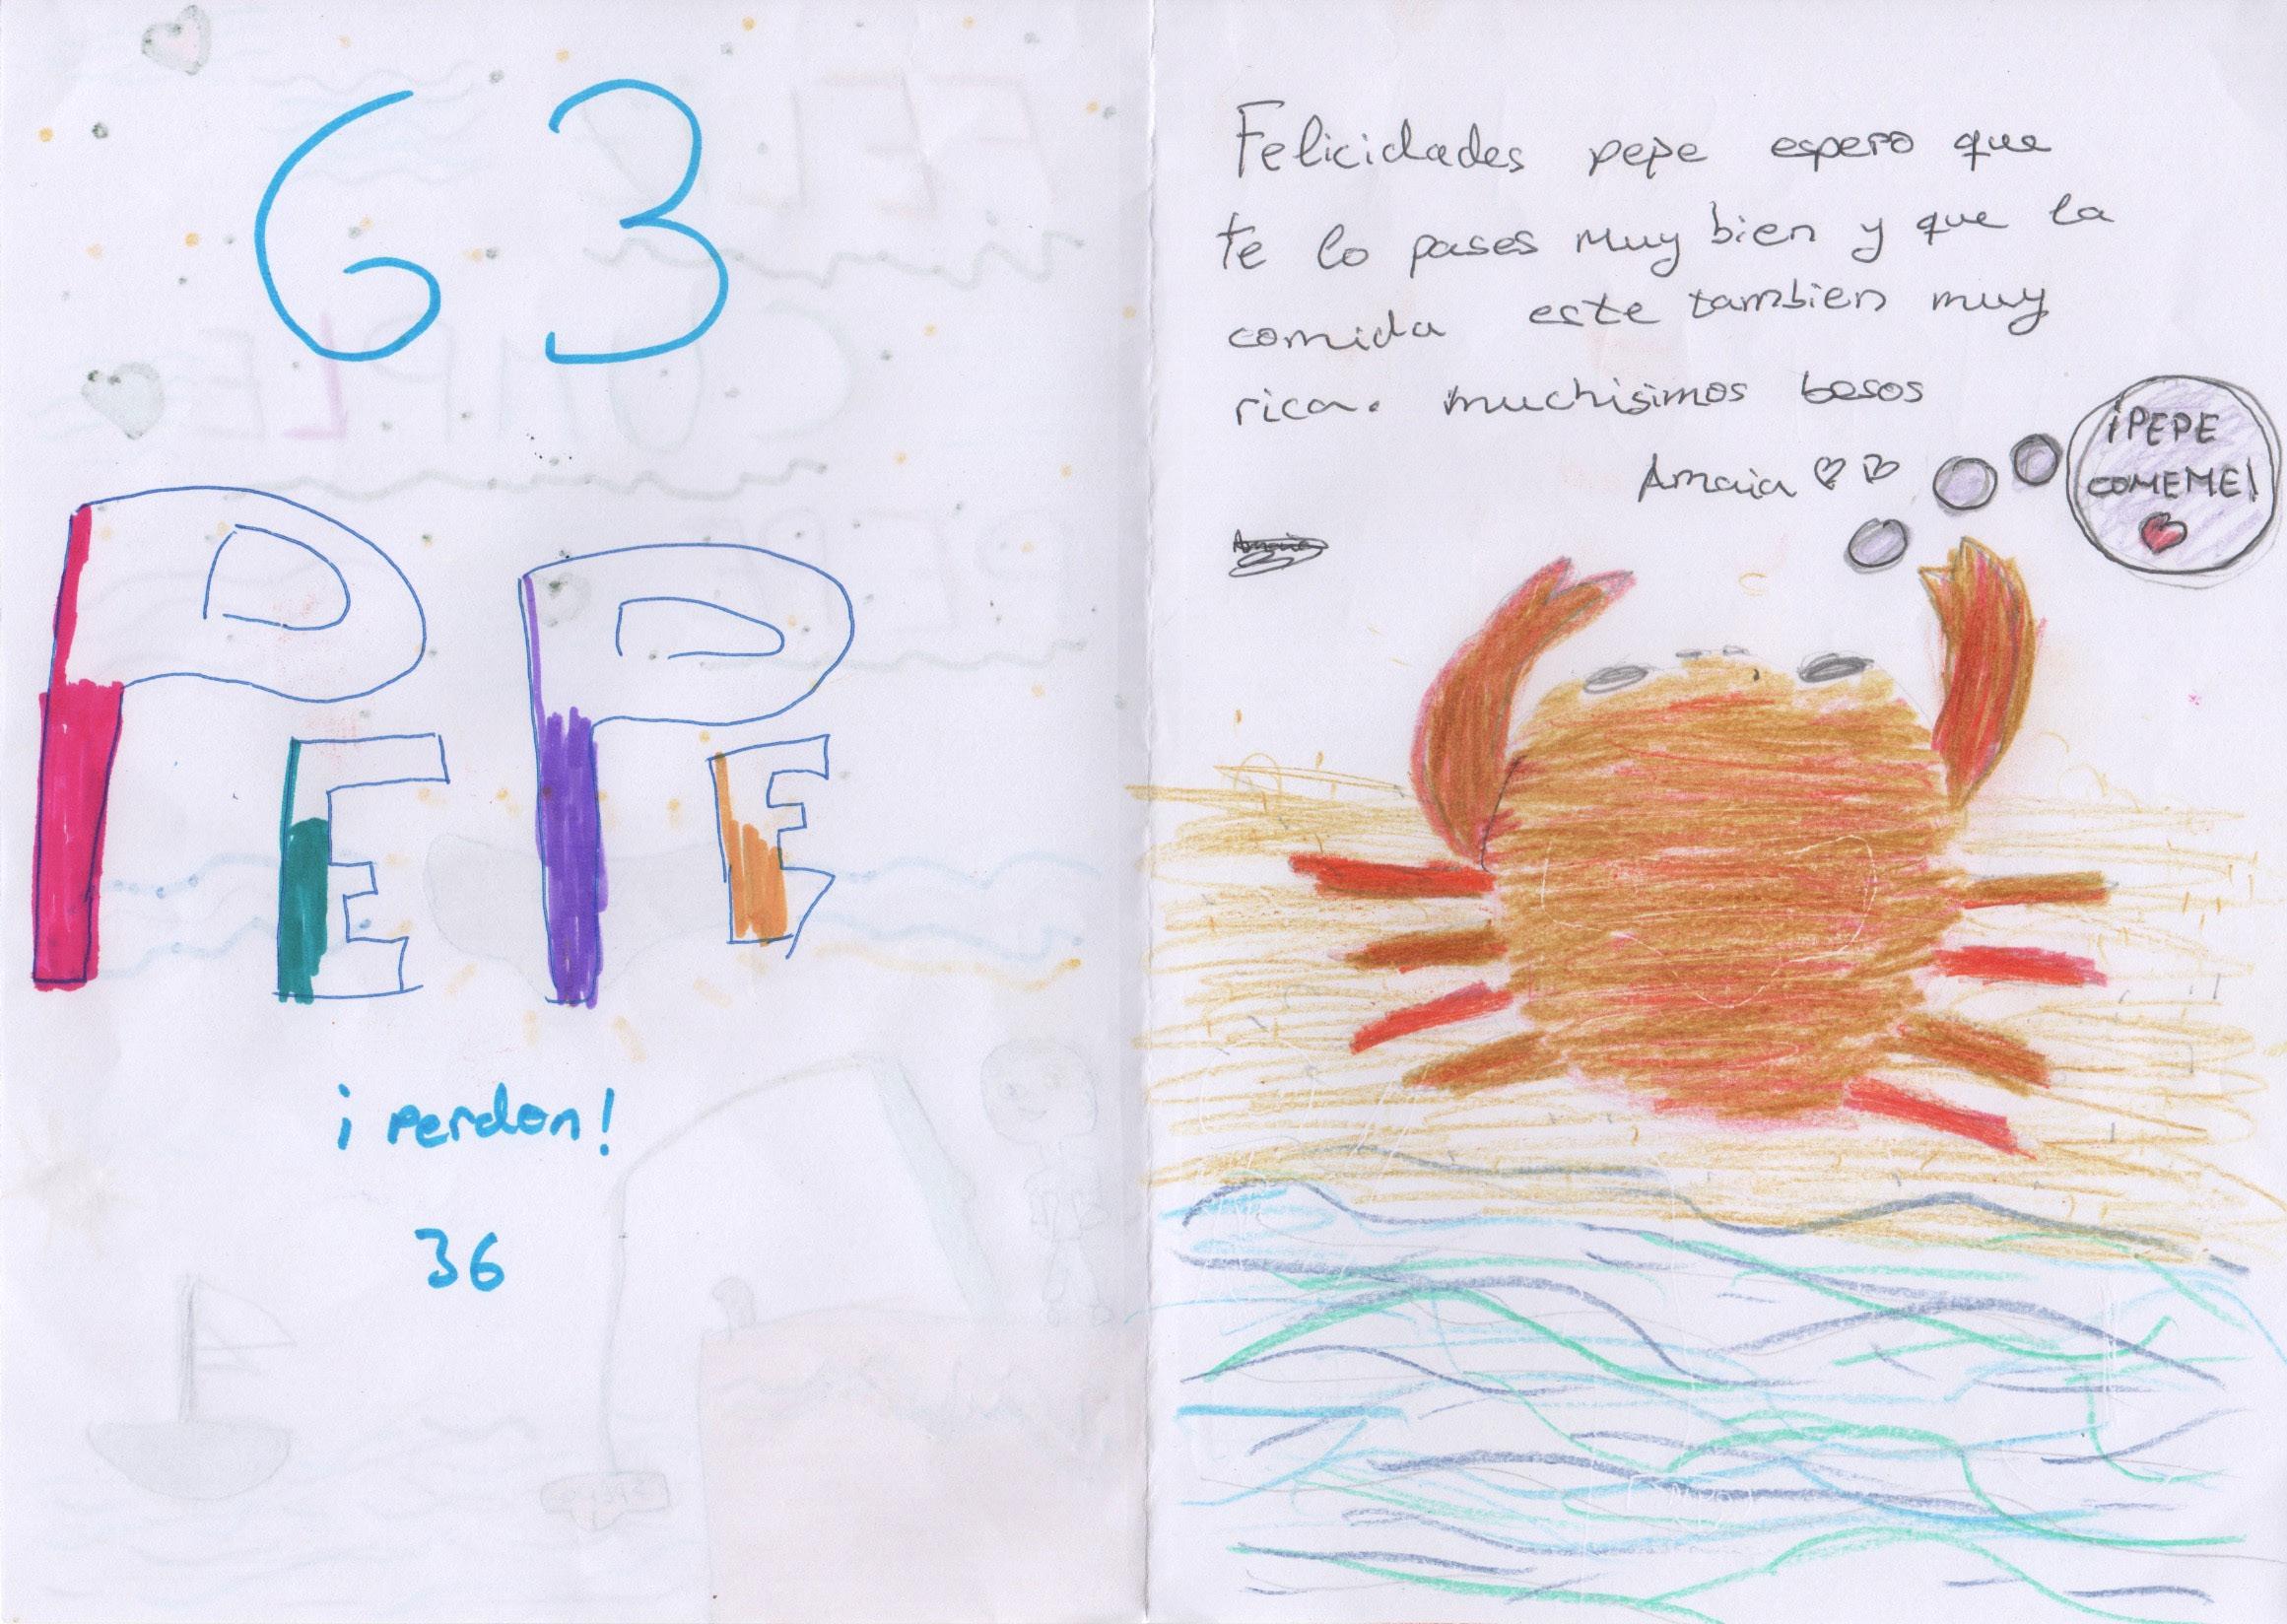 63
PEPE
¡perdon!
36
Felicidades pepe espero que
te lo pases muy bien y que la
comida este tambien muy
rica. muchisimos besos
Amaia
Amaia
¡PEPE
COMEME!